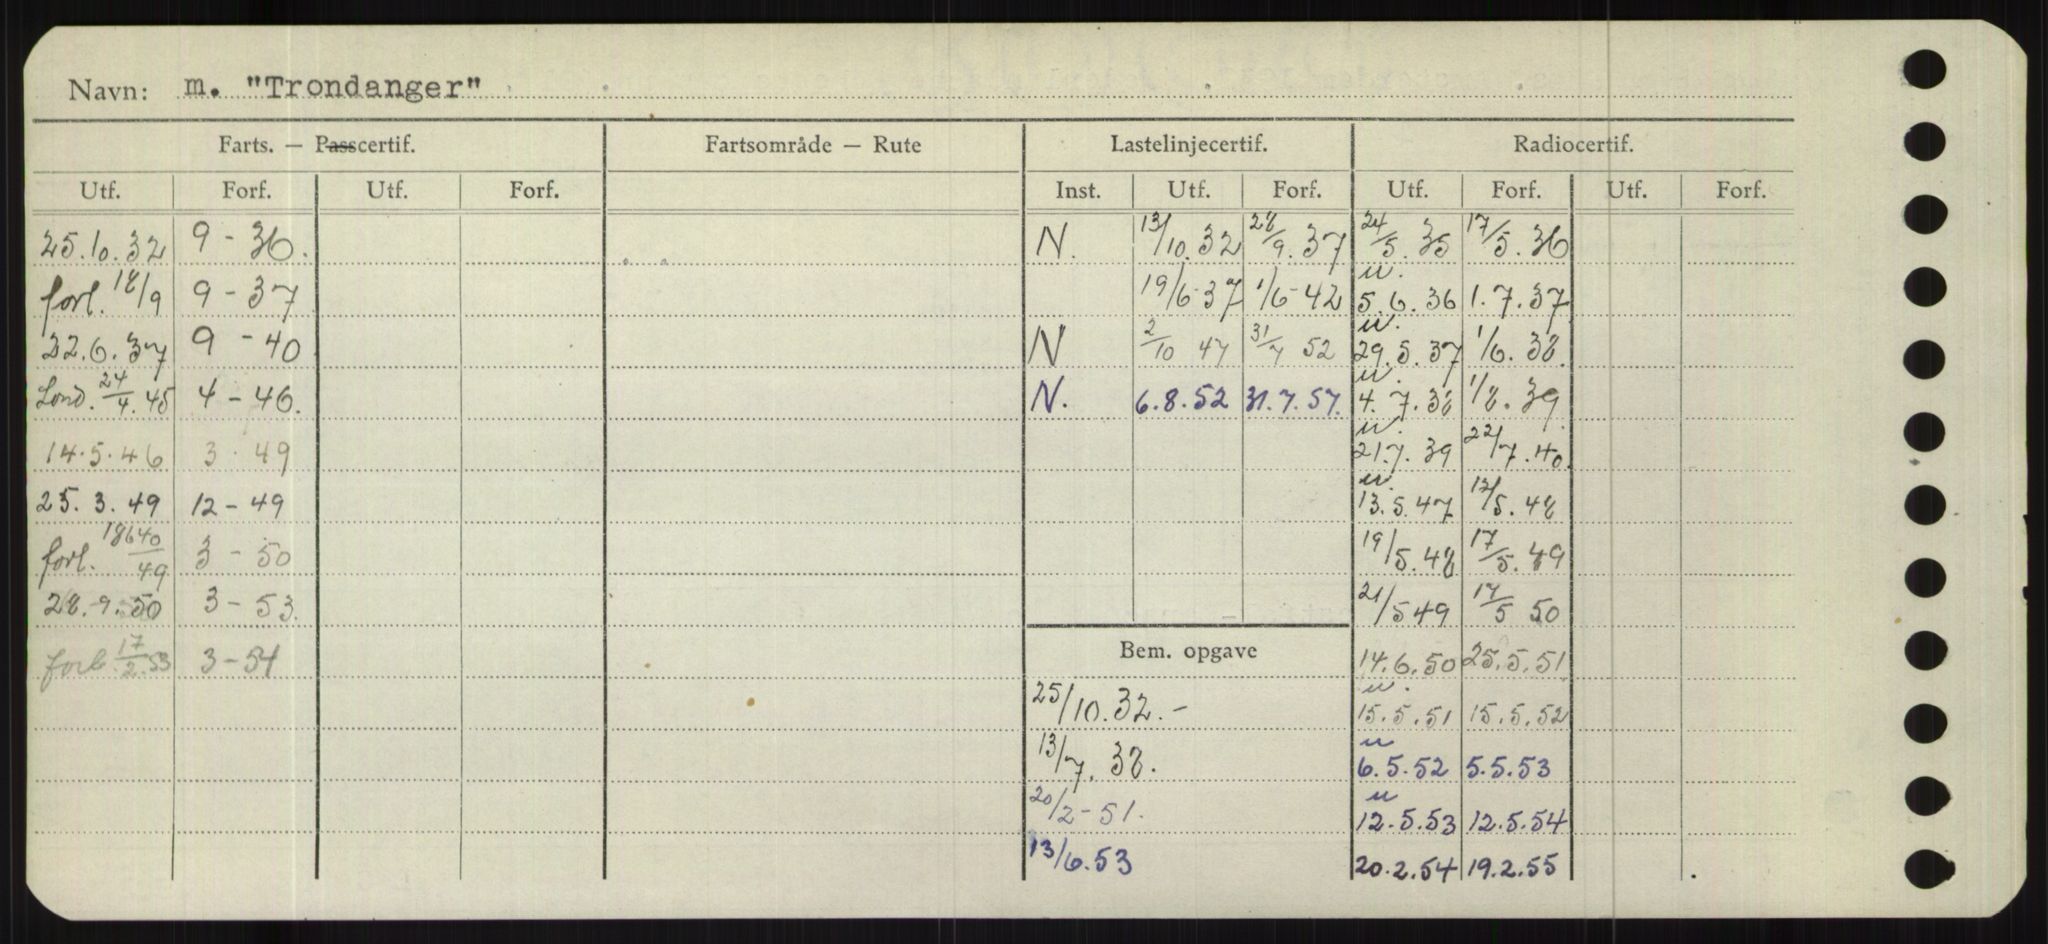 Navn: m. "Trondanger"
Farts. — Passcertif. Fartsområde — Rute Lastelinjecertif. Radiocertif.
Utf. Forf. Utf. Forf. Inst. Utf. Forf. Utf. Forf. Utf. Forf.
25.10.32 9 - 36. N. 13/10.32 28/9.37 24/5.35 17/5.36
forl. 18/9 9 - 37 19/6-37 1/6-42 u. 5.6.36 1.7.37
22.6.37 9 - 40 N 2/10 47 31/7 52 u. 29.5.37 1/6.38.
Lond. 24/4.45 4 - 46. N. 6.8.52 31.7.57. u. 4.7.38 1/8.39
14.5.46 3.49 u. 21.7.39 22/7.40.
25.3.49 12 - 49 u. 13.5.47 12/5.48
forl. 18640/49 3 - 50 19/5.48 17/5.49
28.9.50 3 - 53. 21/5 49 17/5 50
forl. 17/2.53 3 - 54 Bem. opgave 14.6.50 25.5.51
25/10.32.- u. 15.5.51 15.5.52
13/7.38. u 6.5.52 5.5.53
20/2-51. u 12.5.53 12.5.54
13/6.53 20.2.54 19.2.55